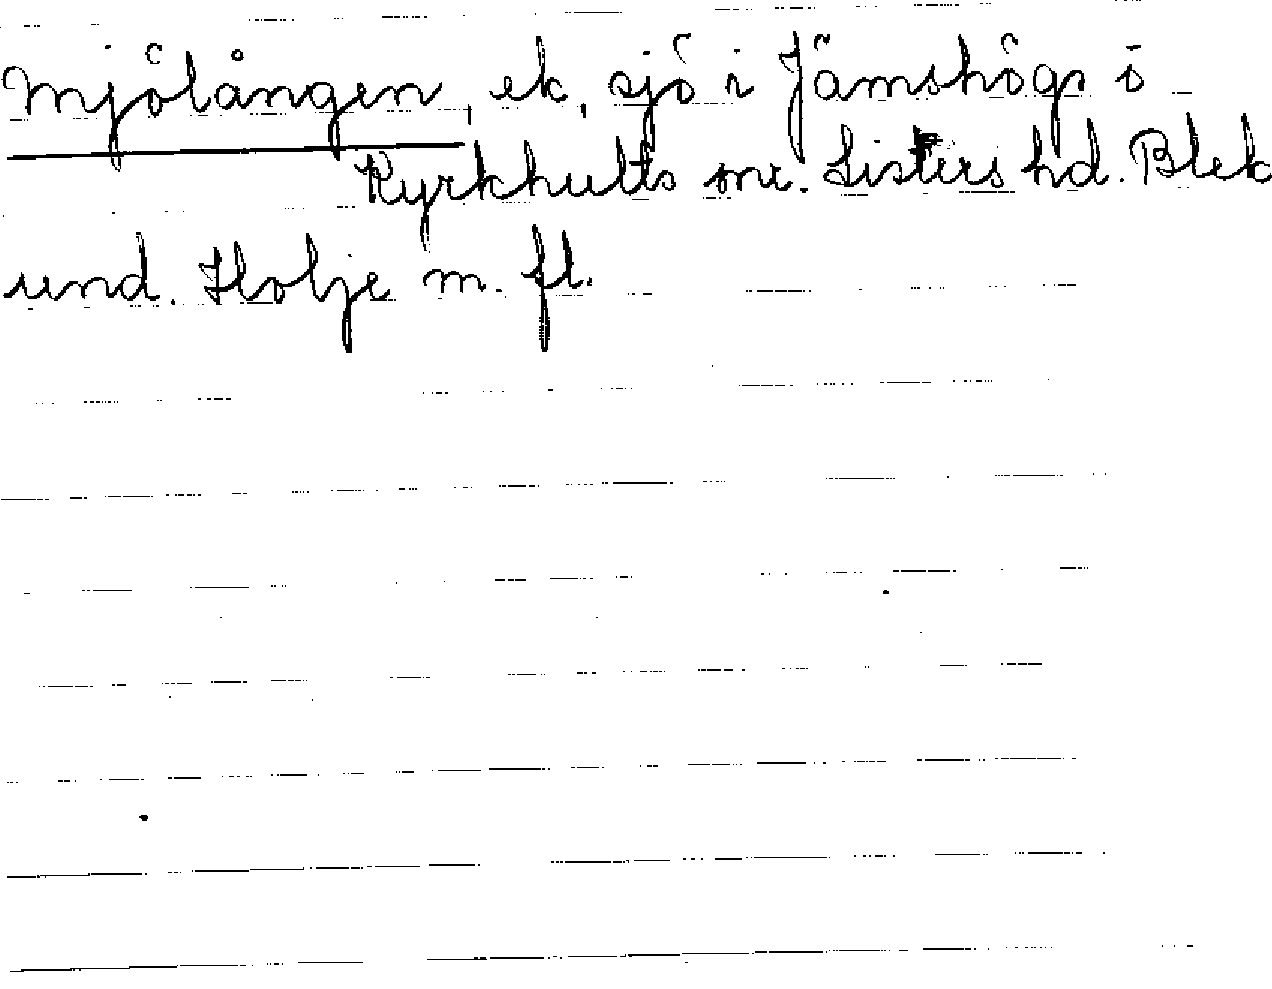 Mjölången, ek, sjö i Jämshögs o
Kyrkhults snr. Listers hd. Blek
und. Holje m. fl.